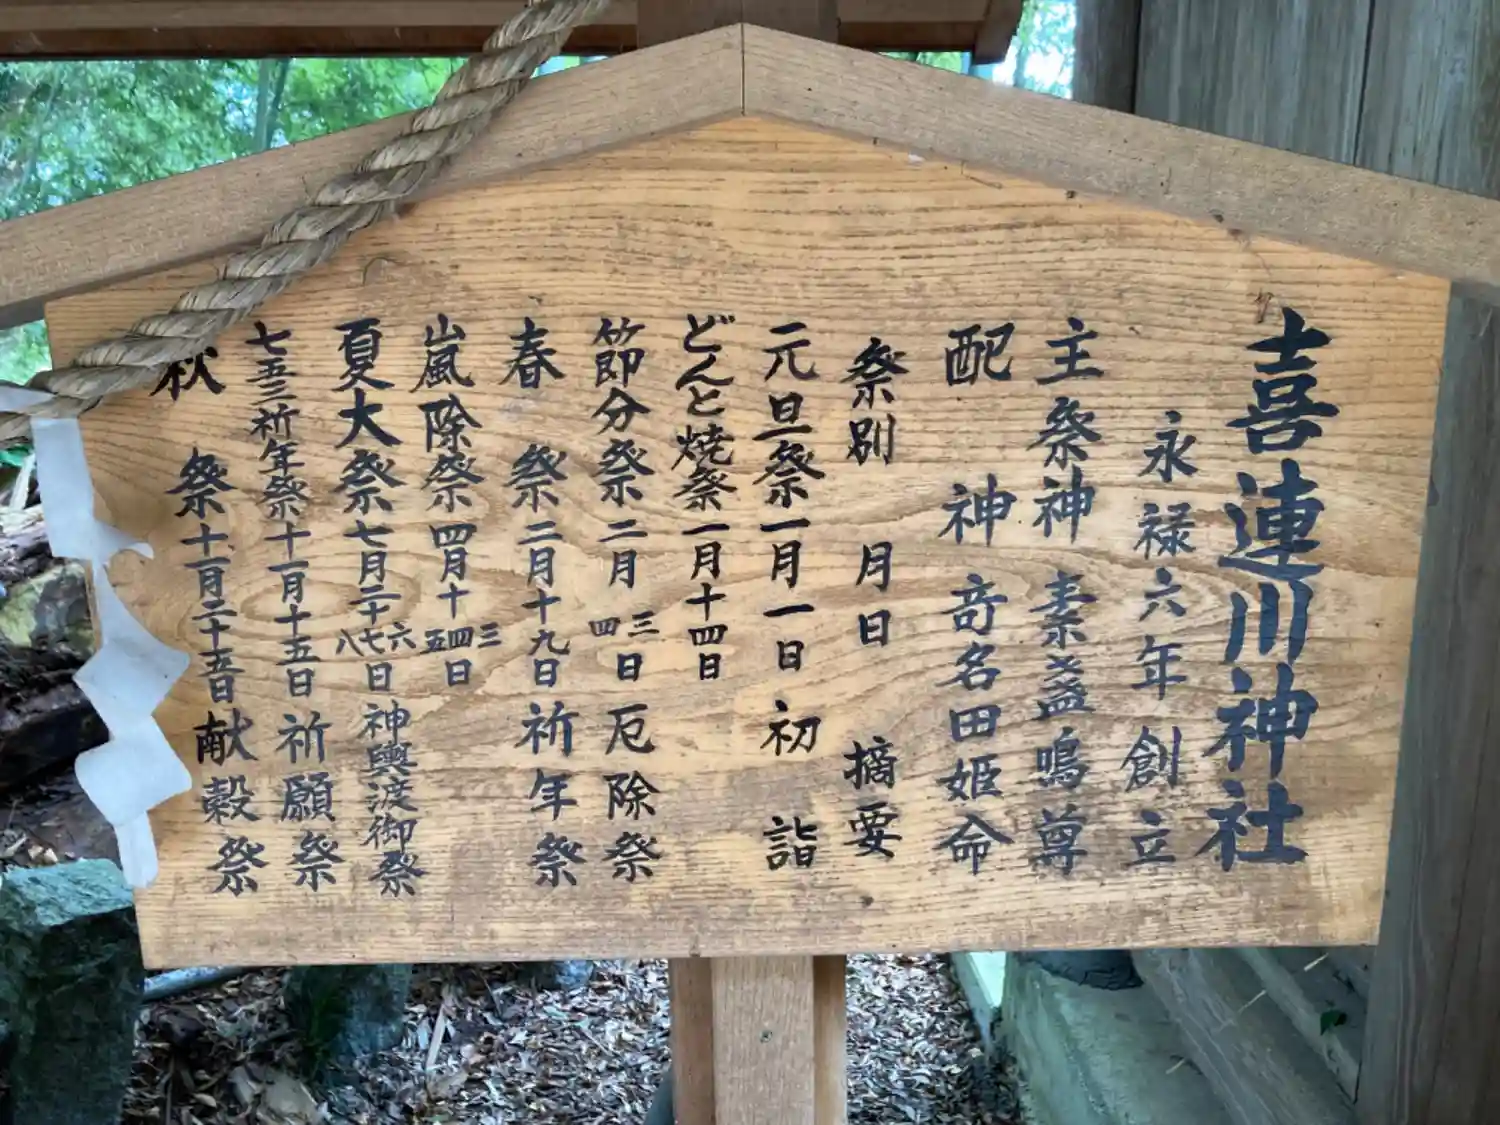 喜連川神社
永禄六年創立
主祭神 素盞鳴尊
配神 奇名田姫命
祭別 月日 摘要
元旦祭 一月一日 初詣
どんと焼祭 一月十四日
節分祭 二月三四日 厄除祭
春祭 二月十九日 祈年祭
嵐除祭 四月十三四五日
夏大祭 七月二十六七八日 神輿渡御祭
七五三祈年祭 十一月十五日 祈願祭
秋祭 十一月二十五日 献穀祭